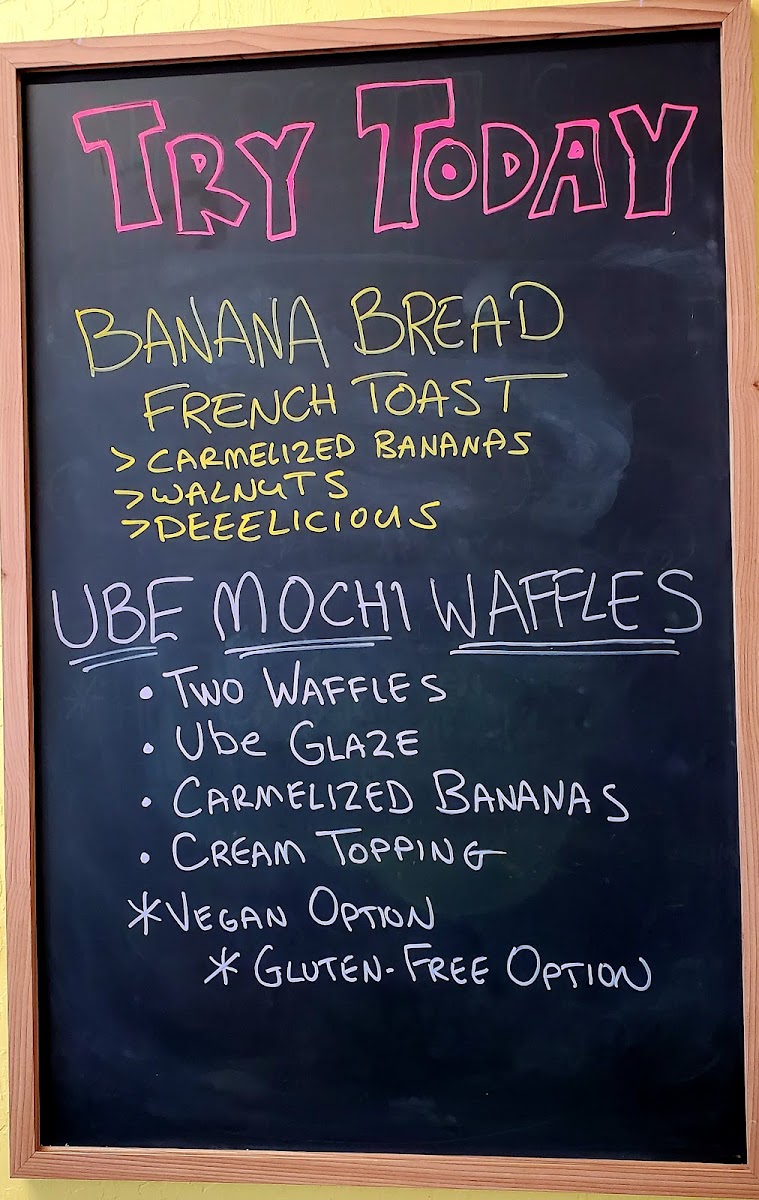 TRY TODAY
BANANA BREAD
FRENCH TOAST
>CARMELIZED BANANAS
>WALNUTS
>DEEELICIOUS
UBE MOCHI WAFFLES
• TWO WAFFLES
• Ube GLAZE
• CARMELIZED BANANAS
• CREAM TOPPING
*VEGAN OPTION
* GLUTEN-FREE OPTION